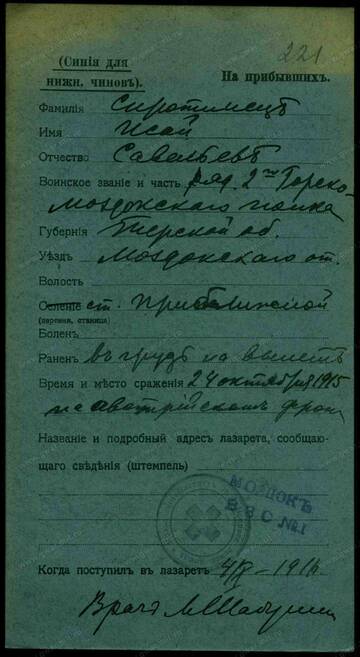 221
(Синія для
нижн. чиновъ).
На прибывшихъ.
Фамилія Сиротинецъ
Имя Исай
Отчество Савельевъ
Воинское званіе и часть ряд. 2го Горско-
моздокскаго полка
Губернія Терской об.
Уѣздъ Моздокскаго от.
Волость
Селеніе ст.
(деревня, станица)
Боленъ
Раненъ въ грудь на вылетъ
Время и мѣсто сраженія 24 октября 1915
на австрійскомъ фрон
Названіе и подробный адресъ лазарета, сообщаю-
щаго свѣдѣнія (штемпель)
МОЗДОКЪ
В З С №1
Когда поступилъ въ лазаретъ 1916
Врачъ